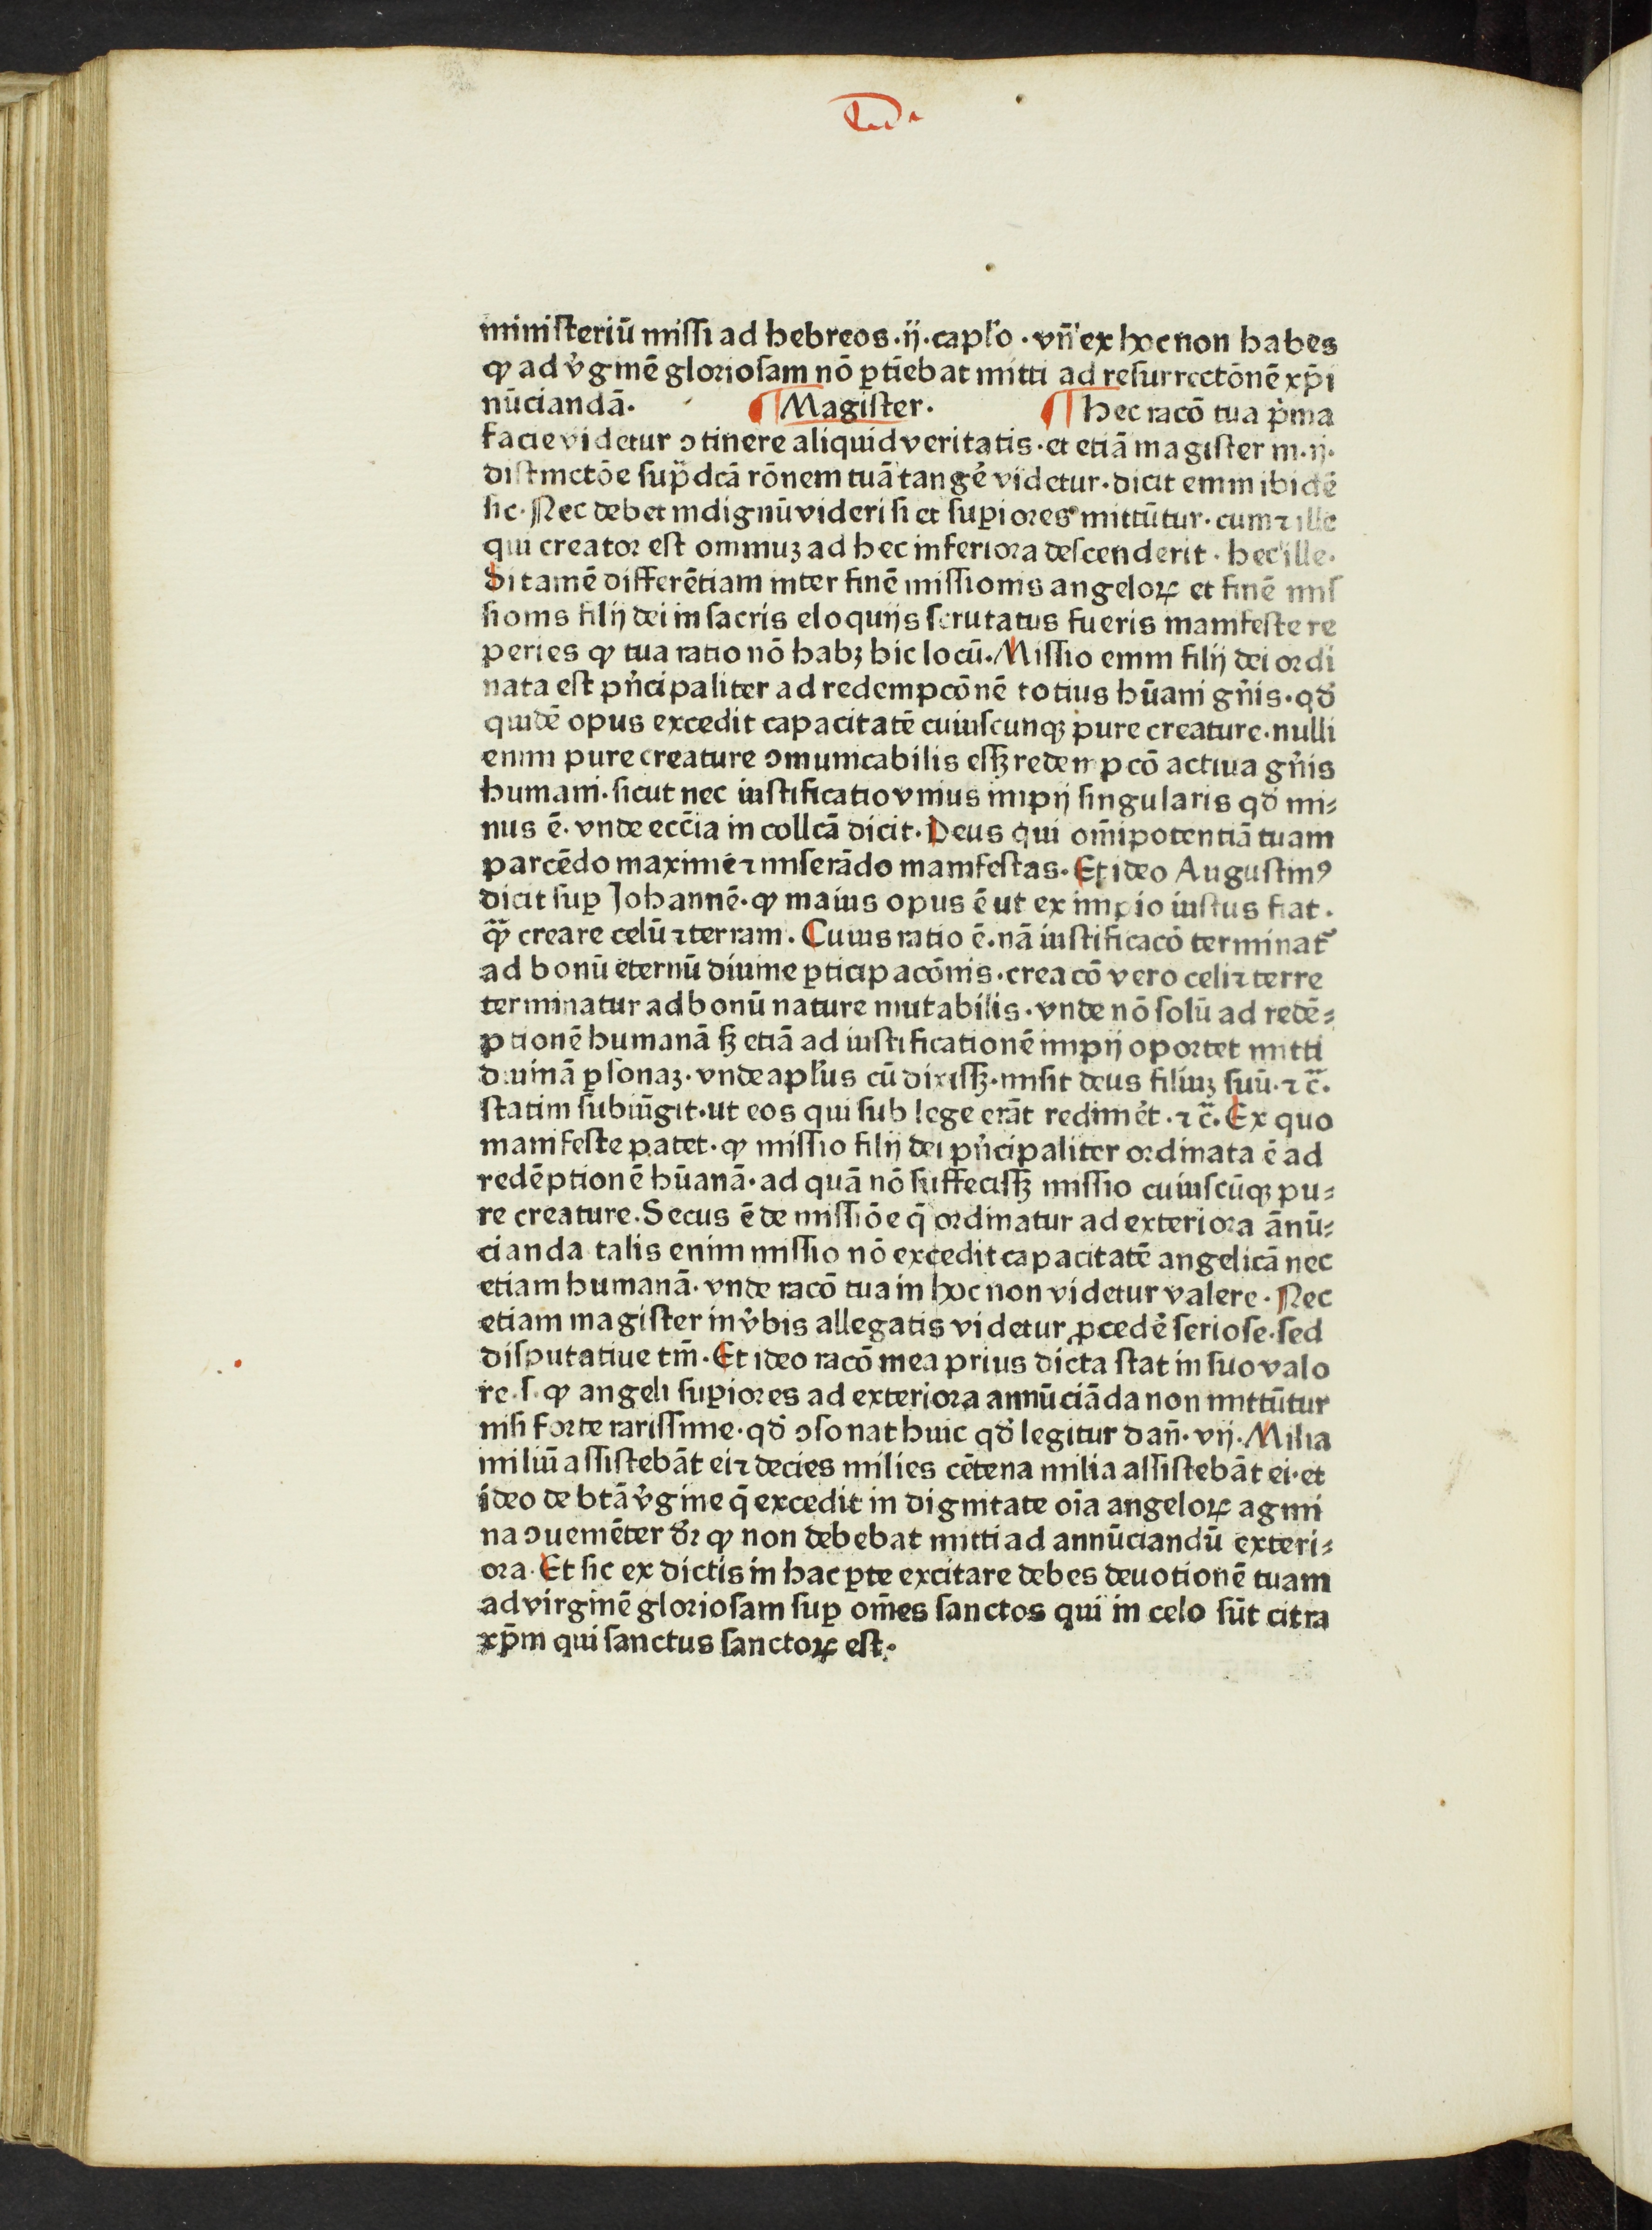 ministeriū missi ad hebreos·ij·caplo·vn̄ ex hoc non habes
ꝙ ad v̾ginē gloriosam nō ꝑtiebat mitti ad resurrectōnē xp̄i
nūciandā· ¶Magister. ¶Hec racō tua p̾ma
facie videtur ↄtinere aliquid veritatis·et etiā magister in·ij·
distinctōe sup̾dcā rōnem tuā tangē videtur·dicit enim ibidē
sic·Nec debet indignū videri si et suꝑiores mittūtur·cum ⁊ ille
qui creator est omniuꝫ ad hec inferiora descenderit·hec ille·
Si tamē differētiam inter finē missionis angeloꝝ et finē mis
sionis filij dei in sacris eloquijs scrutatus fueris manifeste re
peries ꝙ tua ratio nō habꝫ hic locū·Missio enim filij dei ordi
nata est pn̾cipaliter ad redempcōnē totius hūani gn̾is·qd̾
quidē opus excedit capacitatē cuiuscunqꝫ pure creature·nulli
enim pure creature ↄmunicabilis essꝫ redempcō actiua gn̾is
humani·sicut nec iustificatio vnius impij singularis qd̾ mi⸗
nus ē·vnde ecc̄ia in collcā dicit·Deus qui om̄ipotentiā tuam
parcēdo maxime ⁊ miserādo manifestas·Et ideo Augustinꝰ
dicit suꝑ Johannē·ꝙ maius opus ē ut ex impio iustus fiat·
qᷓꝫ creare celū ⁊ terram·Cuius ratio ē·nā iustificacō terminat᷑
ad bonū eternū diuine ꝑticipacōnis·creacō vero celi ⁊ terre
terminatur ad bonū nature mutabilis·vnde nō solū ad redē⸗
ptionē humanā sꝫ etiā ad iustificationē impij oportet mitti
diuinā ꝑsonaꝫ·vnde aplus cū dixissꝫ·misit deus filiuꝫ suū·⁊ c̄·
statim subiūgit·ut eos qui sub lege erāt redimēt·⁊ c̄·Ex quo
manifeste patet·ꝙ missio filij dei pn̾cipaliter ordinata ē ad
redēptionē hūanā·ad quā nō suffecissꝫ missio cuiuscūqꝫ pu⸗
re creature·Secus ē de missiōe q̄ ordinatur ad exteriora ānū⸗
cianda talis enim missio nō excedit capacitatē angelicā nec
etiam humanā·vnde racō tua in hoc non videtur valere·Nec
etiam magister in v̾bis allegatis videtur ꝓcedē seriose·sed
disputatiue tm̄·Et ideo racō mea prius dicta stat in suo valo
re·s·ꝙ angeli suꝑiores ad exteriora annūciāda non mittūtur
nisi forte rarissime·qd̾ ↄsonat huic qd̾ legitur dan̄·vij·Milia
miliū assistebāt ei ⁊ decies milies cētena milia assistebāt ei·et
ideo de btā v̾gine q̄ excedit in dignitate oīa angeloꝝ agmi
na ↄueniēter dr̄ ꝙ non debebat mitti ad annūciandū exteri⸗
ora·Et sic ex dictis in hac ꝑte excitare debes deuotionē tuam
ad virginē gloriosam suꝑ om̄es sanctos qui in celo sūt citra
xp̄m qui sanctus sanctoꝝ est·